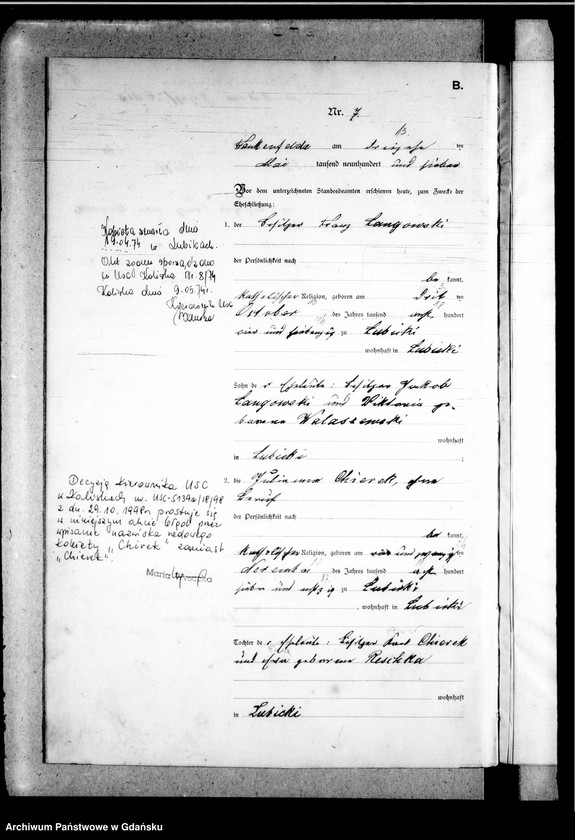 B.
Nr. 7.
13.
am dreizehn ten
Mai tausend neunhundert und sieben
Vor dem unterzeichneten Standesbeamten erschienen heute, zum Zwecke der
Eheschließung:
1. der Besitzer Franz Langowski
der Persönlichkeit nach
be kannt,
katholischer Religion, geboren am dritten
October des Jahres tausend acht hundert
vier und siebenzig zu Lubicki
wohnhaft in Lubicki
Sohn der Eheleute: Besitzer Jakob
Langowski und Viktoria ge-
borene Walaszewski
wohnhaft
in Lubicki
2. die Julianna Chierek, ohne
Beruf
der Persönlichkeit nach
be kannt,
katholischer Religion, geboren am vier und zwanzig
December des Jahres tausend acht hundert
sieben und achtzig zu Lubicki
, wohnhaft in Lubicki
Tochter der Eheleute: Besitzer Chierek
und geborene Reschka
wohnhaft
in Lubicki
Kobieta zmarła dnia
19.04.74 w Lubikach.
Akt zgonu sporządzono
w USC Kaliska Nr. 8/74
Kaliska dnia 9.05.74r.
Kierownik USC
Decyzją kierownika USC
w Kaliskach nr. USC-5139a/18/98
z dn. 29.10.1998r. prostuje się
w niniejszym akcie błąd przez
wpisanie nazwiska rodowego
kobiety "Chirek" zamiast
"Chierek".
Maria
Archiwum Państwowe w Gdańsku